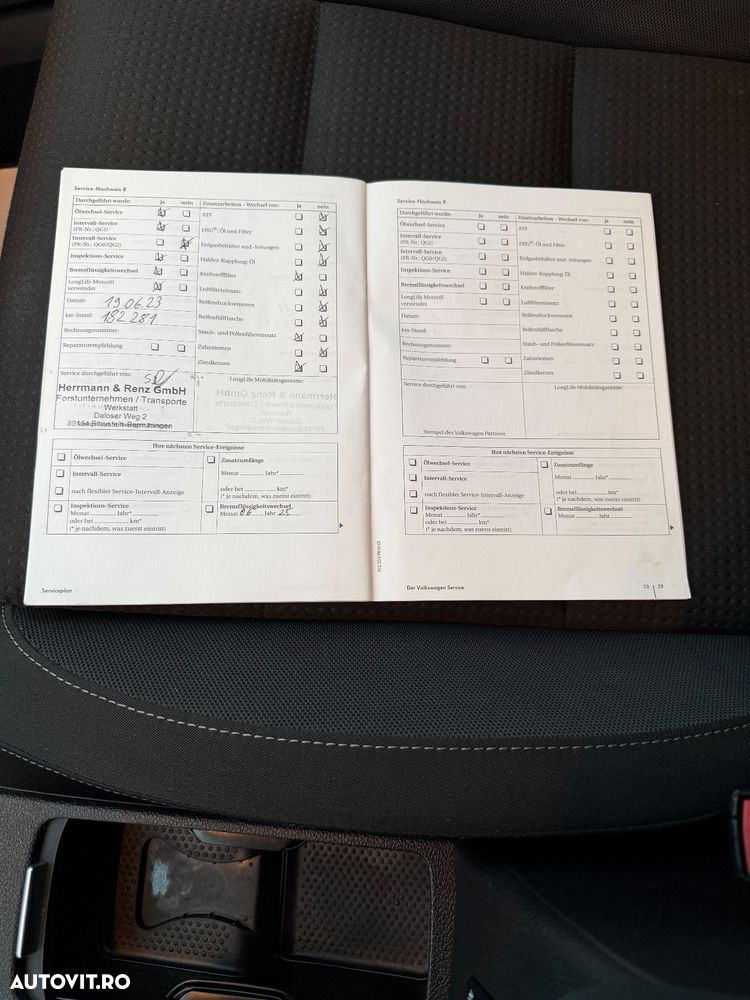 Service-Nachweis 8
Durchgeführt wurde: ja nein
Ölwechsel-Service
Intervall-Service
(PR-Nr.: QG1)
Intervall-Service
(PR-Nr.: QG0/QG2)
Inspektions-Service
Bremsflüssigkeitswechsel
LongLife Motoröl
verwendet
Datum: 19.06.23
km-Stand: 182 281
Rechnungsnummer:
Reparaturempfehlung
Service durchgeführt von:
Herrmann & Renz GmbH
Forstunternehmen / Transporte
Werkstatt
Daloser Weg 2
Zusatzarbeiten – Wechsel von: ja nein
ATF
DSG®: Öl und Filter
Erdgasbehälter und -leitungen
Haldex-Kupplung: Öl
Kraftstofffilter
Luftfiltereinsatz
Reifendrucksensoren
Reifenfüllflasche
Staub- und Pollenfiltereinsatz
Zahnriemen
Zündkerzen
LongLife Mobilitätsgarantie:
Ihre nächsten Service-Ereignisse
Ölwechsel-Service
Intervall-Service
nach flexibler Service-Intervall-Anzeige
Inspektions-Service
Monat Jahr*
oder bei km*
(* je nachdem, was zuerst eintritt)
Zusatzumfänge
Monat Jahr*
oder bei km*
(* je nachdem, was zuerst eintritt)
Bremsflüssigkeitswechsel
Monat 06 Jahr 25
Serviceplan
Service-Nachweis 9
Durchgeführt wurde: ja nein
Ölwechsel-Service
Intervall-Service
(PR-Nr.: QG1)
Intervall-Service
(PR-Nr.: QG0/QG2)
Inspektions-Service
Bremsflüssigkeitswechsel
LongLife Motoröl
verwendet
Datum:
km-Stand:
Rechnungsnummer:
Reparaturempfehlung
Service durchgeführt von:
Stempel des Volkswagen Partners
Zusatzarbeiten – Wechsel von: ja nein
ATF
DSG®: Öl und Filter
Erdgasbehälter und -leitungen
Haldex-Kupplung: Öl
Kraftstofffilter
Luftfiltereinsatz
Reifendrucksensoren
Reifenfüllflasche
Staub- und Pollenfiltereinsatz
Zahnriemen
Zündkerzen
LongLife Mobilitätsgarantie:
Ihre nächsten Service-Ereignisse
Ölwechsel-Service
Intervall-Service
nach flexibler Service-Intervall-Anzeige
Inspektions-Service
Monat Jahr*
oder bei km*
(* je nachdem, was zuerst eintritt)
Zusatzumfänge
Monat Jahr*
oder bei km*
(* je nachdem, was zuerst eintritt)
Bremsflüssigkeitswechsel
Monat Jahr
Der Volkswagen Service
28 | 29
AUTOVIT.RO